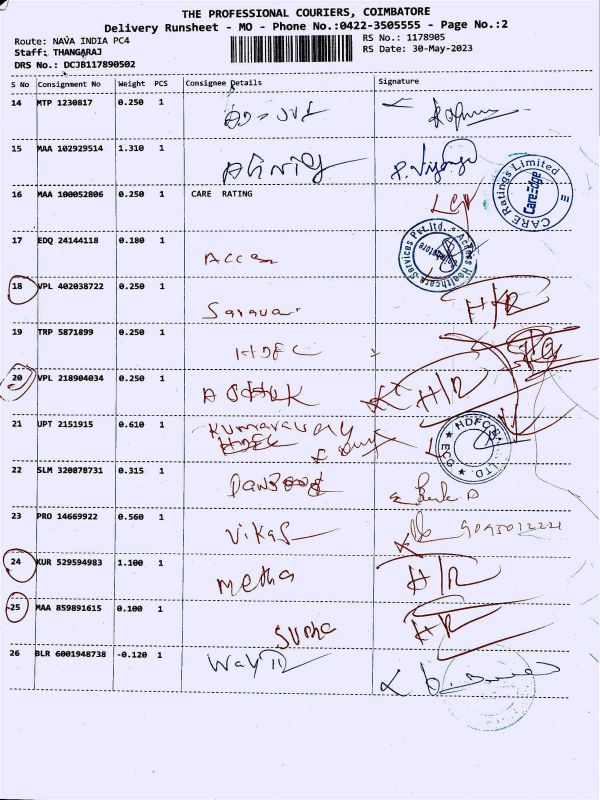 THE PROFESSIONAL COURIERS, COIMBATORE
Delivery Runsheet - MO - Phone No.:0422-3505555 - Page No.:2
Route: NAVA INDIA PC4
RS No.: 1178905
Staff: THANGARAJ
RS Date: 30-May-2023
DRS No.: DCJB117890502
S No Consignment No Weight PCS Consignee Details Signature
14 MTP 1230817 0.250 1
15 MAA 102929514 1.310 1
16 MAA 100052806 0.250 1 CARE RATING
CARE Ratings Limited
CareEdge
17 EDQ 24144118 0.180 1 Acces
Access Healthcare Services Pvt.Ltd.
Coimbatore
18 VPL 402038722 0.250 1 Saravar H/R
19 TRP 5871899 0.250 1 HDFC
20 VPL 218904034 0.250 1 ASHOK H/R
21 UPT 2151915 0.610 1 Kumaravady
HDFC
22 SLM 320878731 0.315 1
23 PRO 14669922 0.560 1 Vikas
24 KUR 529594983 1.100 1 Metha H/R
25 MAA 859891615 0.100 1 Sudha H/R
26 BLR 6001948738 -0.120 1